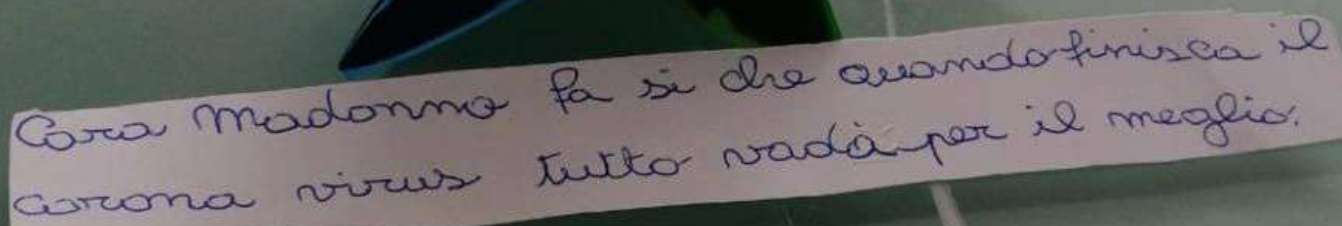 Cara Madonna fa si che quando finisca il
corona virus tutto vada per il meglio.